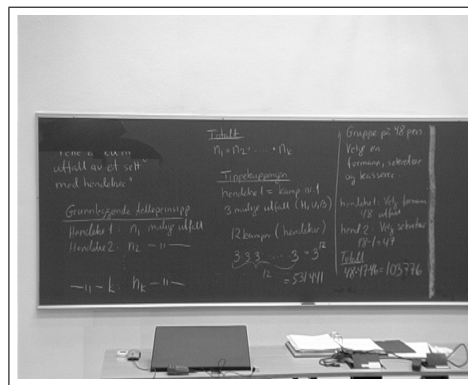 utfall av et sett
med hendelser"
Grunnleggende telleprinsipp
Hendelse 1: n₁ mulige utfall
Hendelse 2: n₂ -"-
-"- k: nₖ -"-
Totalt
n₁ · n₂ · ..... · nₖ
Tippekupongen
hendelse 1 = kamp nr. 1
3 mulige utfall (H, U, B)
12 kamper (hendelser)
3 3 3 ... 3 = 3¹²
12
= 531441
Gruppe på 48 pers
Velge en
formann, sekretær
og kasserer
hendelse 1: Velg formann
48 utfall
hend 2: Velg sekretær
48-1=47
Totalt
48·47·46=103776